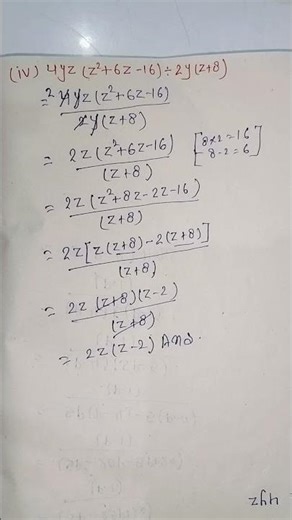 (iv) 4yz(z²+6z-16)÷2y(z+8)
= ²4yz(z²+6z-16)
2y(z+8)
= 2z(z²+6z-16) [8×2=16
(z+8) 8-2=6]
= 2z(z²+8z-2z-16)
(z+8)
= 2z[z(z+8)-2(z+8)]
(z+8)
= 2z(z+8)(z-2)
(z+8)
= 2z(z-2) Ans.
4yz